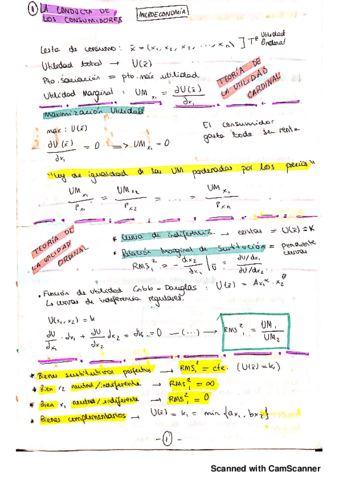 ① LA CONDUCTA DE LOS CONSUMIDORES
MICROECONOMÍA
Cesta de consumo: x̄ = (x₁, x₂, x₃, ..., xₙ) ] Tª Utilidad Ordinal
Utilidad total → U(x̄)
Pto. saciación = pto. más utilidad
Utilidad Marginal: UMₓ₁ = dU(x̄)/dx₁
TEORÍA DE LA UTILIDAD CARDINAL
Maximización Utilidad:
máx: U(x̄)
dU(x̄)/dx₁ = 0 => UMₓ₁ = 0
El consumidor gasta toda su renta
"Ley de igualdad de las UM ponderadas por los precios"
UMₓ₁/Pₓ₁ = UMₓ₂/Pₓ₂ = ... = UMₓₙ/Pₓₙ
TEORÍA DE LA UTILIDAD ORDINAL
* Curva de indiferencia → = U(x̄) = K
* Relación Marginal de Sustitución = pendiente curvas
RMS₁² = - dx₂/dx₁ | Ū = dU/dx₁ / dU/dx₂
• Función de Utilidad Cobb-Douglas: U(x̄) = Ax₁^α · x₂^β
↳ curvas de indiferencia regulares
U(x₁, x₂) = k
dU/dx₁ · dx₁ + dU/dx₂ · dx₂ = dk = 0 — (...) → RMS₁² = UM₁/UM₂
* Bienes sustitutivos perfectos → RMS₁² = cte. (U(x̄) = k)
* Bien x₂ neutral/indiferente → RMS₁² = ∞
* Bien x₁ neutral/indiferente → RMS₁² = 0
* Bienes complementarios → U(x̄) = k = min {ax₁, bx₂}
-1-
Scanned with CamScanner